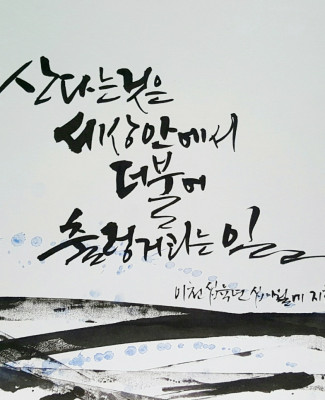 산다는것은
세상안에서
더불어
출렁거리는 일
이천 십육년